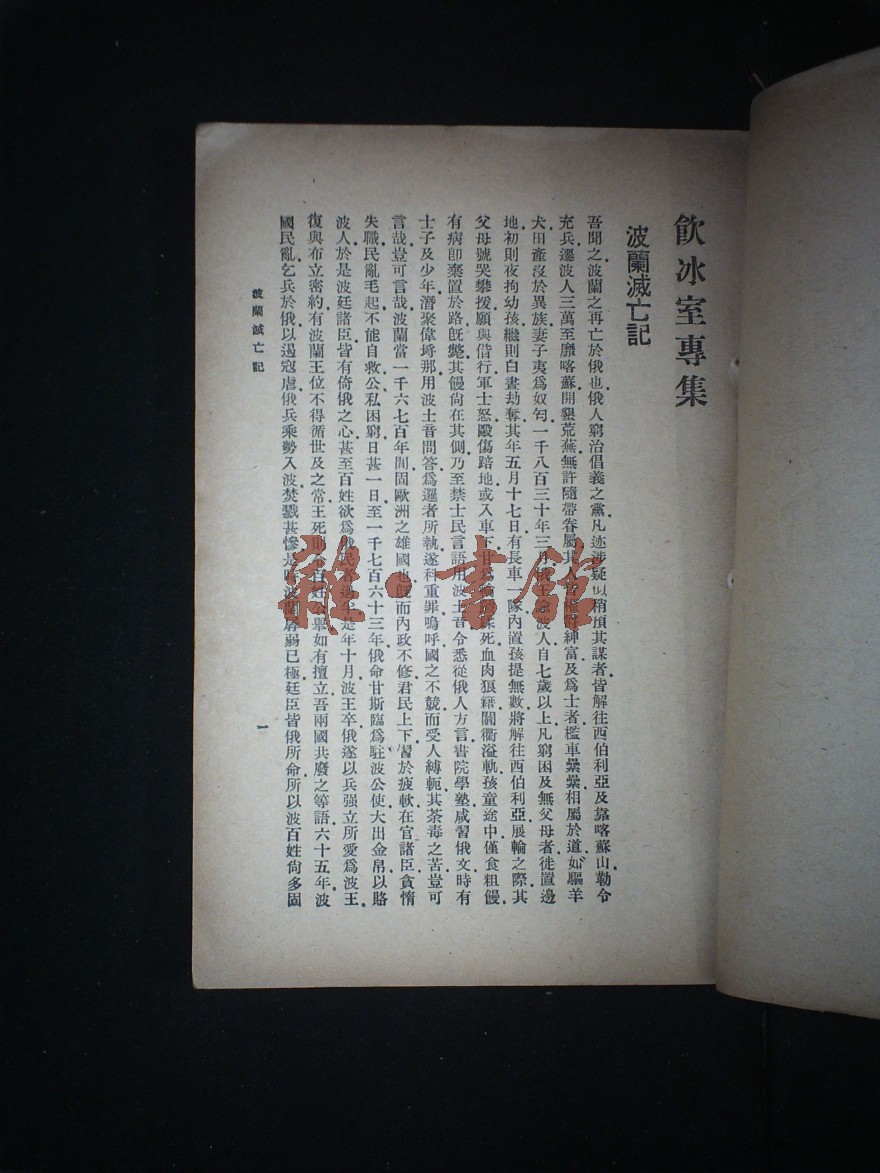 飲冰室專集
波蘭滅亡記
吾聞之波蘭之再亡於俄也俄人窮治倡義之黨凡迹涉疑似稍預其謀者皆解往西伯利亞及靠喀蘇山勒令
充兵遷波人三萬至靡喀蘇開墾荒蕪無許隨帶眷屬其人皆紳富及爲士者檻車纍纍相屬於道如驅羊
犬田產沒於異族妻子夷爲奴匄一千八百三十年三月俄王波人自七歲以上凡窮困及無父母者徙置邊
地初則夜拘幼孩繼則白晝劫奪其年五月十七日有長車一隊內置孩提無數將解往西伯利亞展輪之際其
父母號哭攀援願與偕行軍士怒毆傷踣地或入車下甘爲死血肉狼籍闐衢溢軌孩童途中僅食粗饅
有病卽棄置於路旣斃其饅尙在其側乃至禁士民言語用波土音令悉從俄人方言書院學塾咸習俄文時有
士子及少年潛聚偉埓那用波土音問答爲邏者所執遂科重罪嗚呼國之不競而受人縛軛其荼毒之苦豈可
言哉豈可言哉波蘭當一千六七百年間固歐洲之雄國也旣而內政不修君民上下習於疲軟在官諸臣貪惰
失職民亂毛起不能自救公私困窮日甚一日至一千七百六十三年俄命甘斯臨爲駐波公使大出金帛以賂
波人於是波廷諸臣皆有倚俄之心甚至百姓欲爲俄民者過半是年十月波王卒俄遂以兵强立所愛爲波王
復與布立密約有波蘭王位不得循世及之常王死則令百姓公舉如有擅立吾兩國共廢之等語六十五年波
國民亂乞兵於俄以遏寇虐俄兵乘勢入波焚戮甚慘是時波蘭孱弱已極廷臣皆俄所命所以波百姓尙多固
波蘭滅亡記
一
雜書館